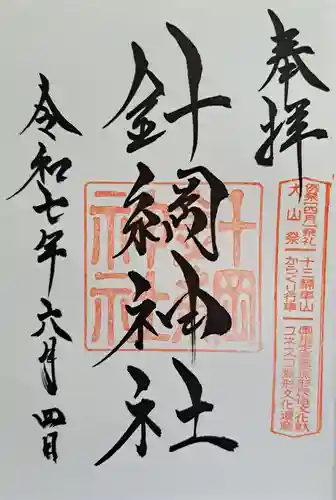 奉拝
例祭(四月)祭礼
犬山祭
十三輌車山
からくり行事
国指定重要無形民俗文化財
ユネスコ無形文化遺産
針綱神社
令和七年六月四日